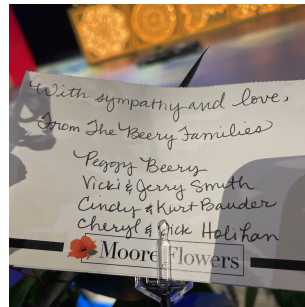 With sympathy and love,
From The Beery Families
Peggy Beery
Vicki & Jerry Smith
Cindy & Kurt Bauder
Cheryl & Dick Holihan
Moore Flowers